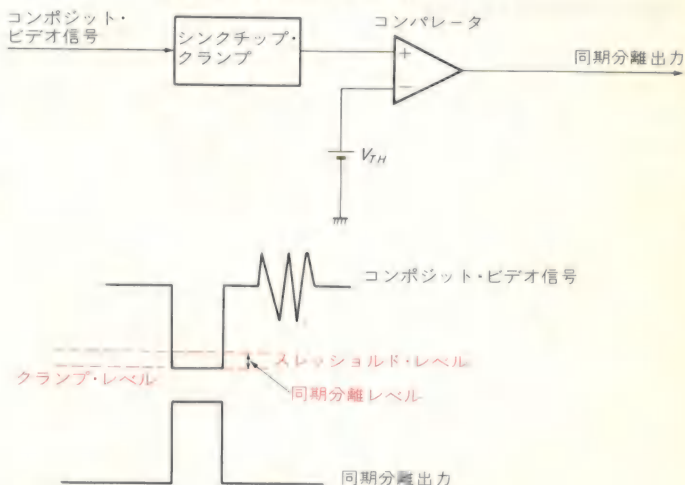 コンポジット・
ビデオ信号
シンクチップ・
クランプ
コンパレータ
+
−
同期分離出力
V_TH
コンポジット・ビデオ信号
スレッショルド・レベル
クランプ・レベル
同期分離レベル
同期分離出力